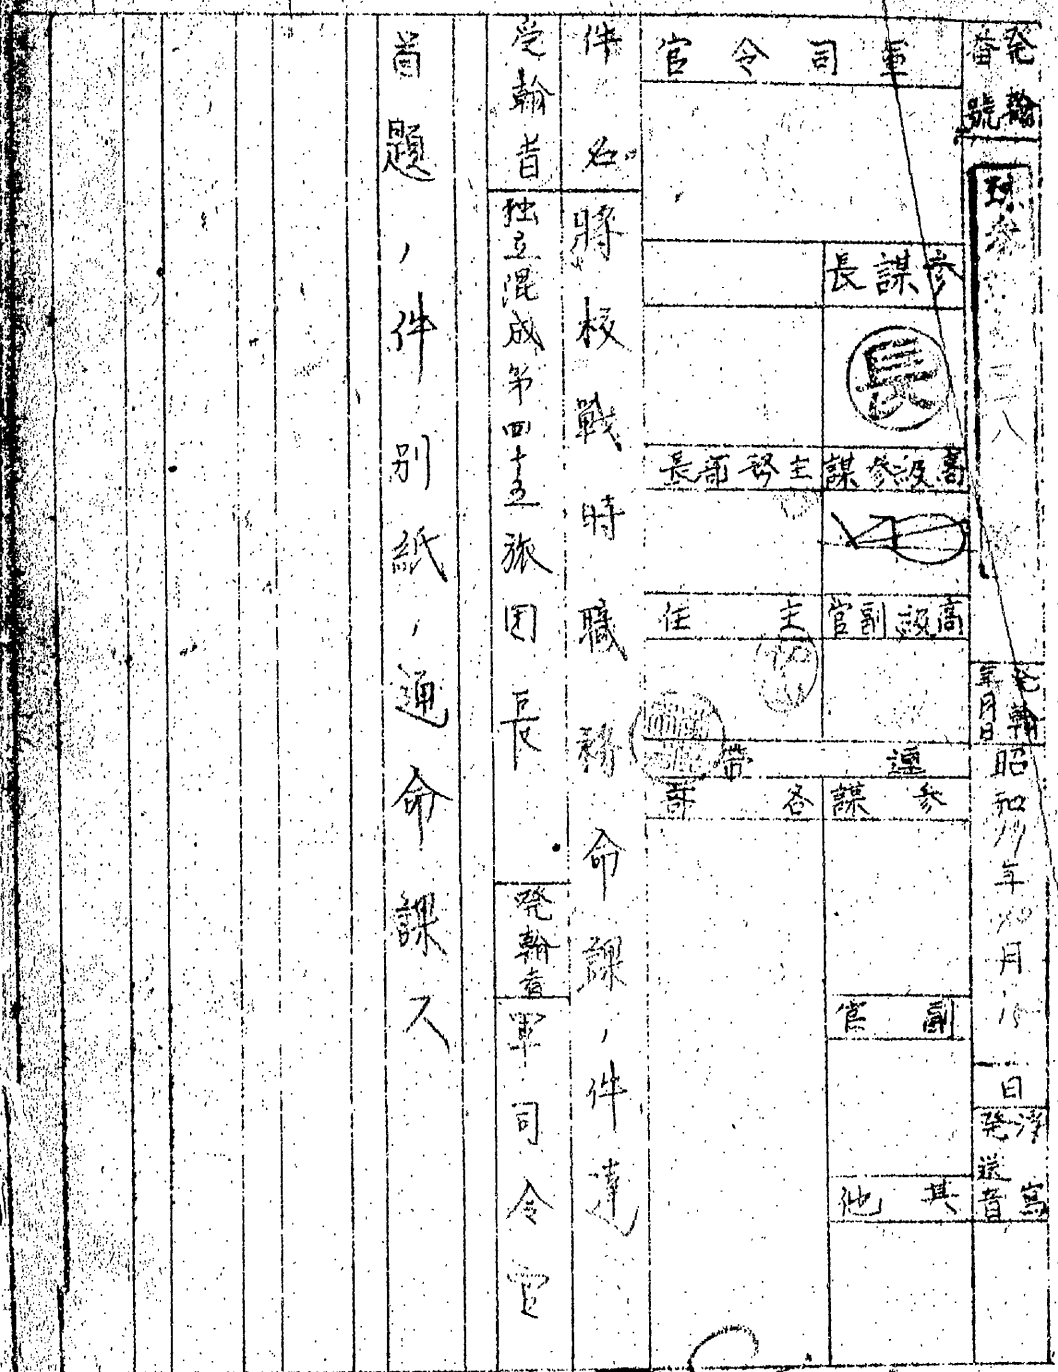 発翰番號
球参
二八
発翰年月日
昭和19年 月15日
浄寫
発送者
軍司令官
参謀長
長
高級参謀
主務部長
高級副官
主任
連帯
参謀
各部
副官
其他
件名
将校戦時職務命課ノ件達
受翰者
独立混成第四十五旅団長
発翰者
軍司令官
首題ノ件別紙ノ通命課ス